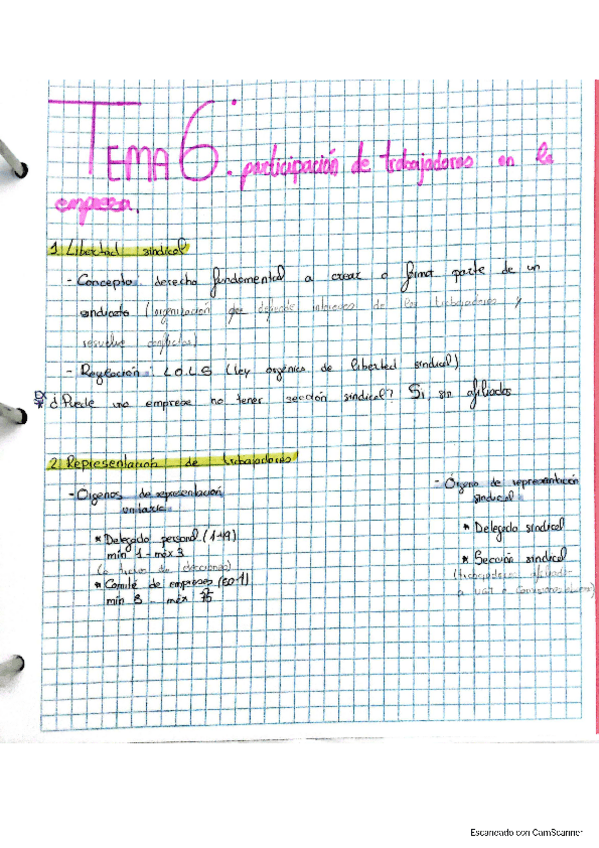 TEMA 6. participación de trabajadores en la
empresa.
1. Libertad sindical
- Concepto: derecho fundamental a crear o formar parte de un
sindicato (organización que defiende intereses de los trabajadores y
resuelve conflictos)
- Regulación: L.O.L.S (ley orgánica de libertad sindical)
¿Puede una empresa no tener sección sindical? Si, sin afiliados
2. Representación de trabajadores
- Organos de representación
unitaria
* Delegado personal
min 1 - máx 3
* Comité de empresas
min 5 - máx 75
- Órgano de representación
sindical
* Delegado sindical
* Sección sindical
Escaneado con CamScanner